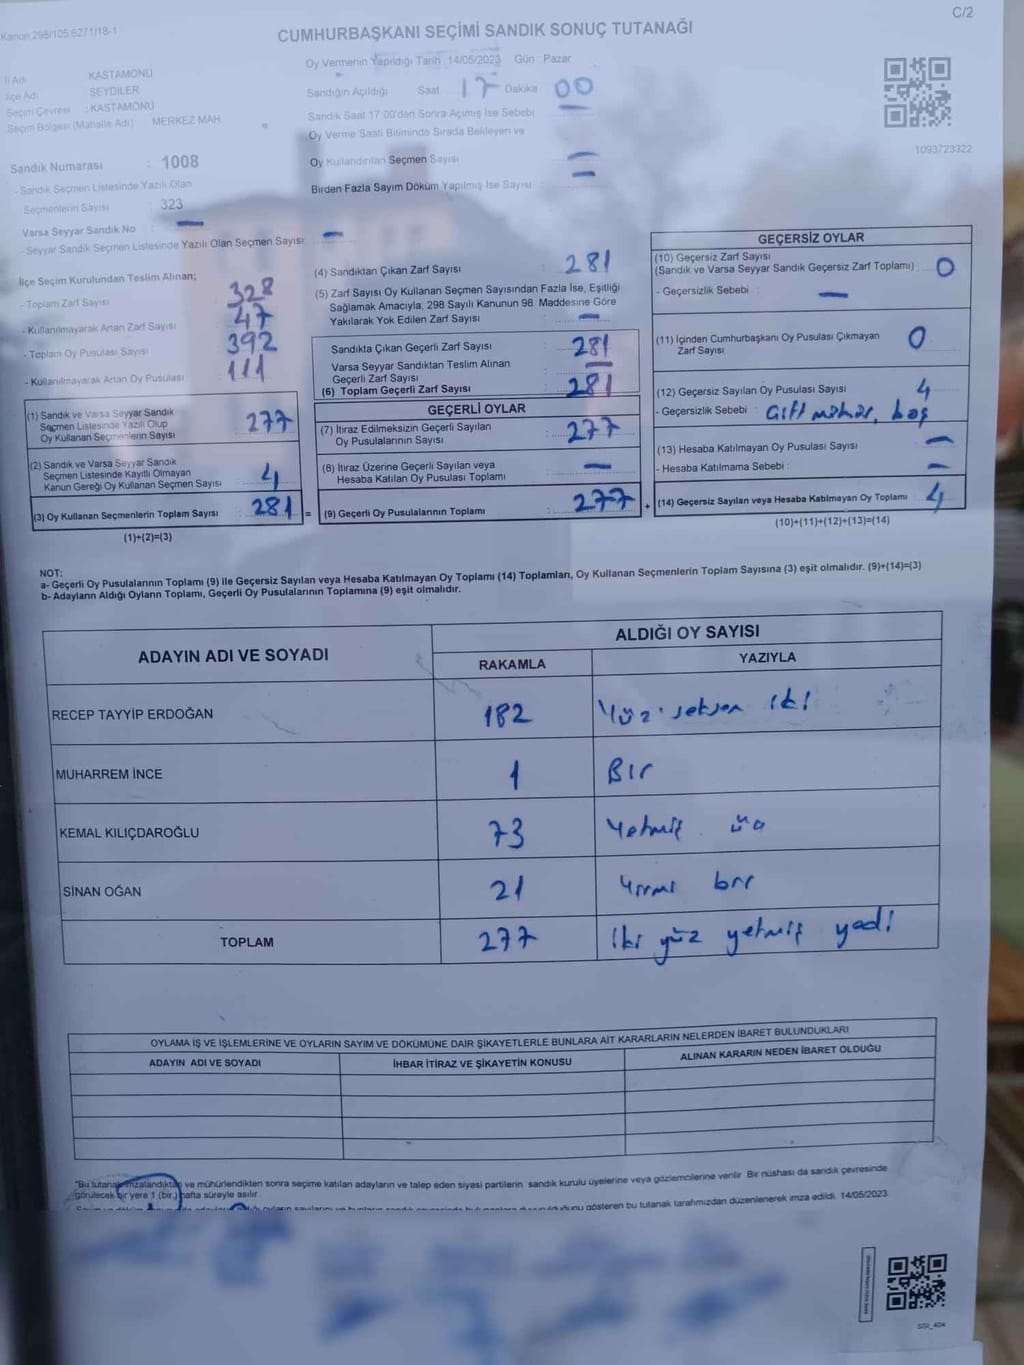 C/2
Kanun 298/105 6271/18-1
CUMHURBAŞKANI SEÇİMİ SANDIK SONUÇ TUTANAĞI
Oy Vermenin Yapıldığı Tarih 14/05/2023 Gün Pazar
İl Adı KASTAMONU
İlçe Adı SEYDİLER
Seçim Çevresi : KASTAMONU
Seçim Bölgesi (Mahalle Adı) MERKEZ MAH.
Sandığın Açıldığı Saat 17 Dakika 00
Sandık Saat 17:00'den Sonra Açımış İse Sebebi
Oy Verme Saati Bitiminde Sırada Bekleyen ve
Oy Kullandırılan Seçmen Sayısı =
Birden Fazla Sayım Döküm Yapılmış İse Sayısı -
1093723322
Sandık Numarası : 1008
- Sandık Seçmen Listesinde Yazılı Olan
Seçmenlerin Sayısı : 323
Varsa Seyyar Sandık No -
- Seyyar Sandık Seçmen Listesinde Yazılı Olan Seçmen Sayısı: -
İlçe Seçim Kurulundan Teslim Alınan;
- Toplam Zarf Sayısı 328
- Kullanılmayarak Artan Zarf Sayısı 47
- Toplam Oy Pusulası Sayısı 392
- Kullanılmayarak Artan Oy Pusulası 111
(1) Sandık ve Varsa Seyyar Sandık
Seçmen Listesinde Yazılı Olup
Oy Kullanan Seçmenlerin Sayısı 277
(2) Sandık ve Varsa Seyyar Sandık
Seçmen Listesinde Kayıtlı Olmayan
Kanun Gereği Oy Kullanan Seçmen Sayısı 4
(3) Oy Kullanan Seçmenlerin Toplam Sayısı 281 =
(1)+(2)=(3)
(4) Sandıktan Çıkan Zarf Sayısı : 281
(5) Zarf Sayısı Oy Kullanan Seçmen Sayısından Fazla İse, Eşitliği
Sağlamak Amacıyla; 298 Sayılı Kanunun 98. Maddesine Göre
Yakılarak Yok Edilen Zarf Sayısı : -
Sandıkta Çıkan Geçerli Zarf Sayısı : 281
Varsa Seyyar Sandıktan Teslim Alınan
Geçerli Zarf Sayısı : -
(6) Toplam Geçerli Zarf Sayısı : 281
GEÇERLİ OYLAR
(7) İtiraz Edilmeksizin Geçerli Sayılan
Oy Pusulalarının Sayısı : 277
(8) İtiraz Üzerine Geçerli Sayılan veya
Hesaba Katılan Oy Pusulası Toplamı : -
(9) Geçerli Oy Pusulalarının Toplamı : 277 +
GEÇERSİZ OYLAR
(10) Geçersiz Zarf Sayısı
(Sandık ve Varsa Seyyar Sandık Geçersiz Zarf Toplamı) : 0
- Geçersizlik Sebebi : -
(11) İçinden Cumhurbaşkanı Oy Pusulası Çıkmayan
Zarf Sayısı : 0
(12) Geçersiz Sayılan Oy Pusulası Sayısı : 4
- Geçersizlik Sebebi : Çift mühür, boş
(13) Hesaba Katılmayan Oy Pusulası Sayısı : -
- Hesaba Katılmama Sebebi : -
(14) Geçersiz Sayılan veya Hesaba Katılmayan Oy Toplamı : 4
(10)+(11)+(12)+(13)=(14)
NOT:
a- Geçerli Oy Pusulalarının Toplamı (9) ile Geçersiz Sayılan veya Hesaba Katılmayan Oy Toplamı (14) Toplamları, Oy Kullanan Seçmenlerin Toplam Sayısına (3) eşit olmalıdır. (9)+(14)=(3)
b- Adayların Aldığı Oyların Toplamı, Geçerli Oy Pusulalarının Toplamına (9) eşit olmalıdır.
ADAYIN ADI VE SOYADI ALDIĞI OY SAYISI
RAKAMLA YAZIYLA
RECEP TAYYİP ERDOĞAN 182 Yüz seksen iki
MUHARREM İNCE 1 Bir
KEMAL KILIÇDAROĞLU 73 Yetmiş üç
SİNAN OĞAN 21 Yirmi bir
TOPLAM 277 iki yüz yetmiş yedi
OYLAMA İŞ VE İŞLEMLERİNE VE OYLARIN SAYIM VE DÖKÜMÜNE DAİR ŞİKAYETLERLE BUNLARA AİT KARARLARIN NELERDEN İBARET BULUNDUKLARI
ADAYIN ADI VE SOYADI İHBAR İTİRAZ VE ŞİKAYETİN KONUSU ALINAN KARARIN NEDEN İBARET OLDUĞU
*Bu tutanak imzalandıktan ve mühürlendikten sonra seçime katılan adayların ve talep eden siyasi partilerin sandık kurulu üyelerine veya gözlemcilerine verilir. Bir nüshası da sandık çevresinde
görülecek bir yere 1 (bir ) hafta süreyle asılır.
gösteren bu tutanak tarafımızdan düzenlenerek imza edildi. 14/05/2023
SSI_404